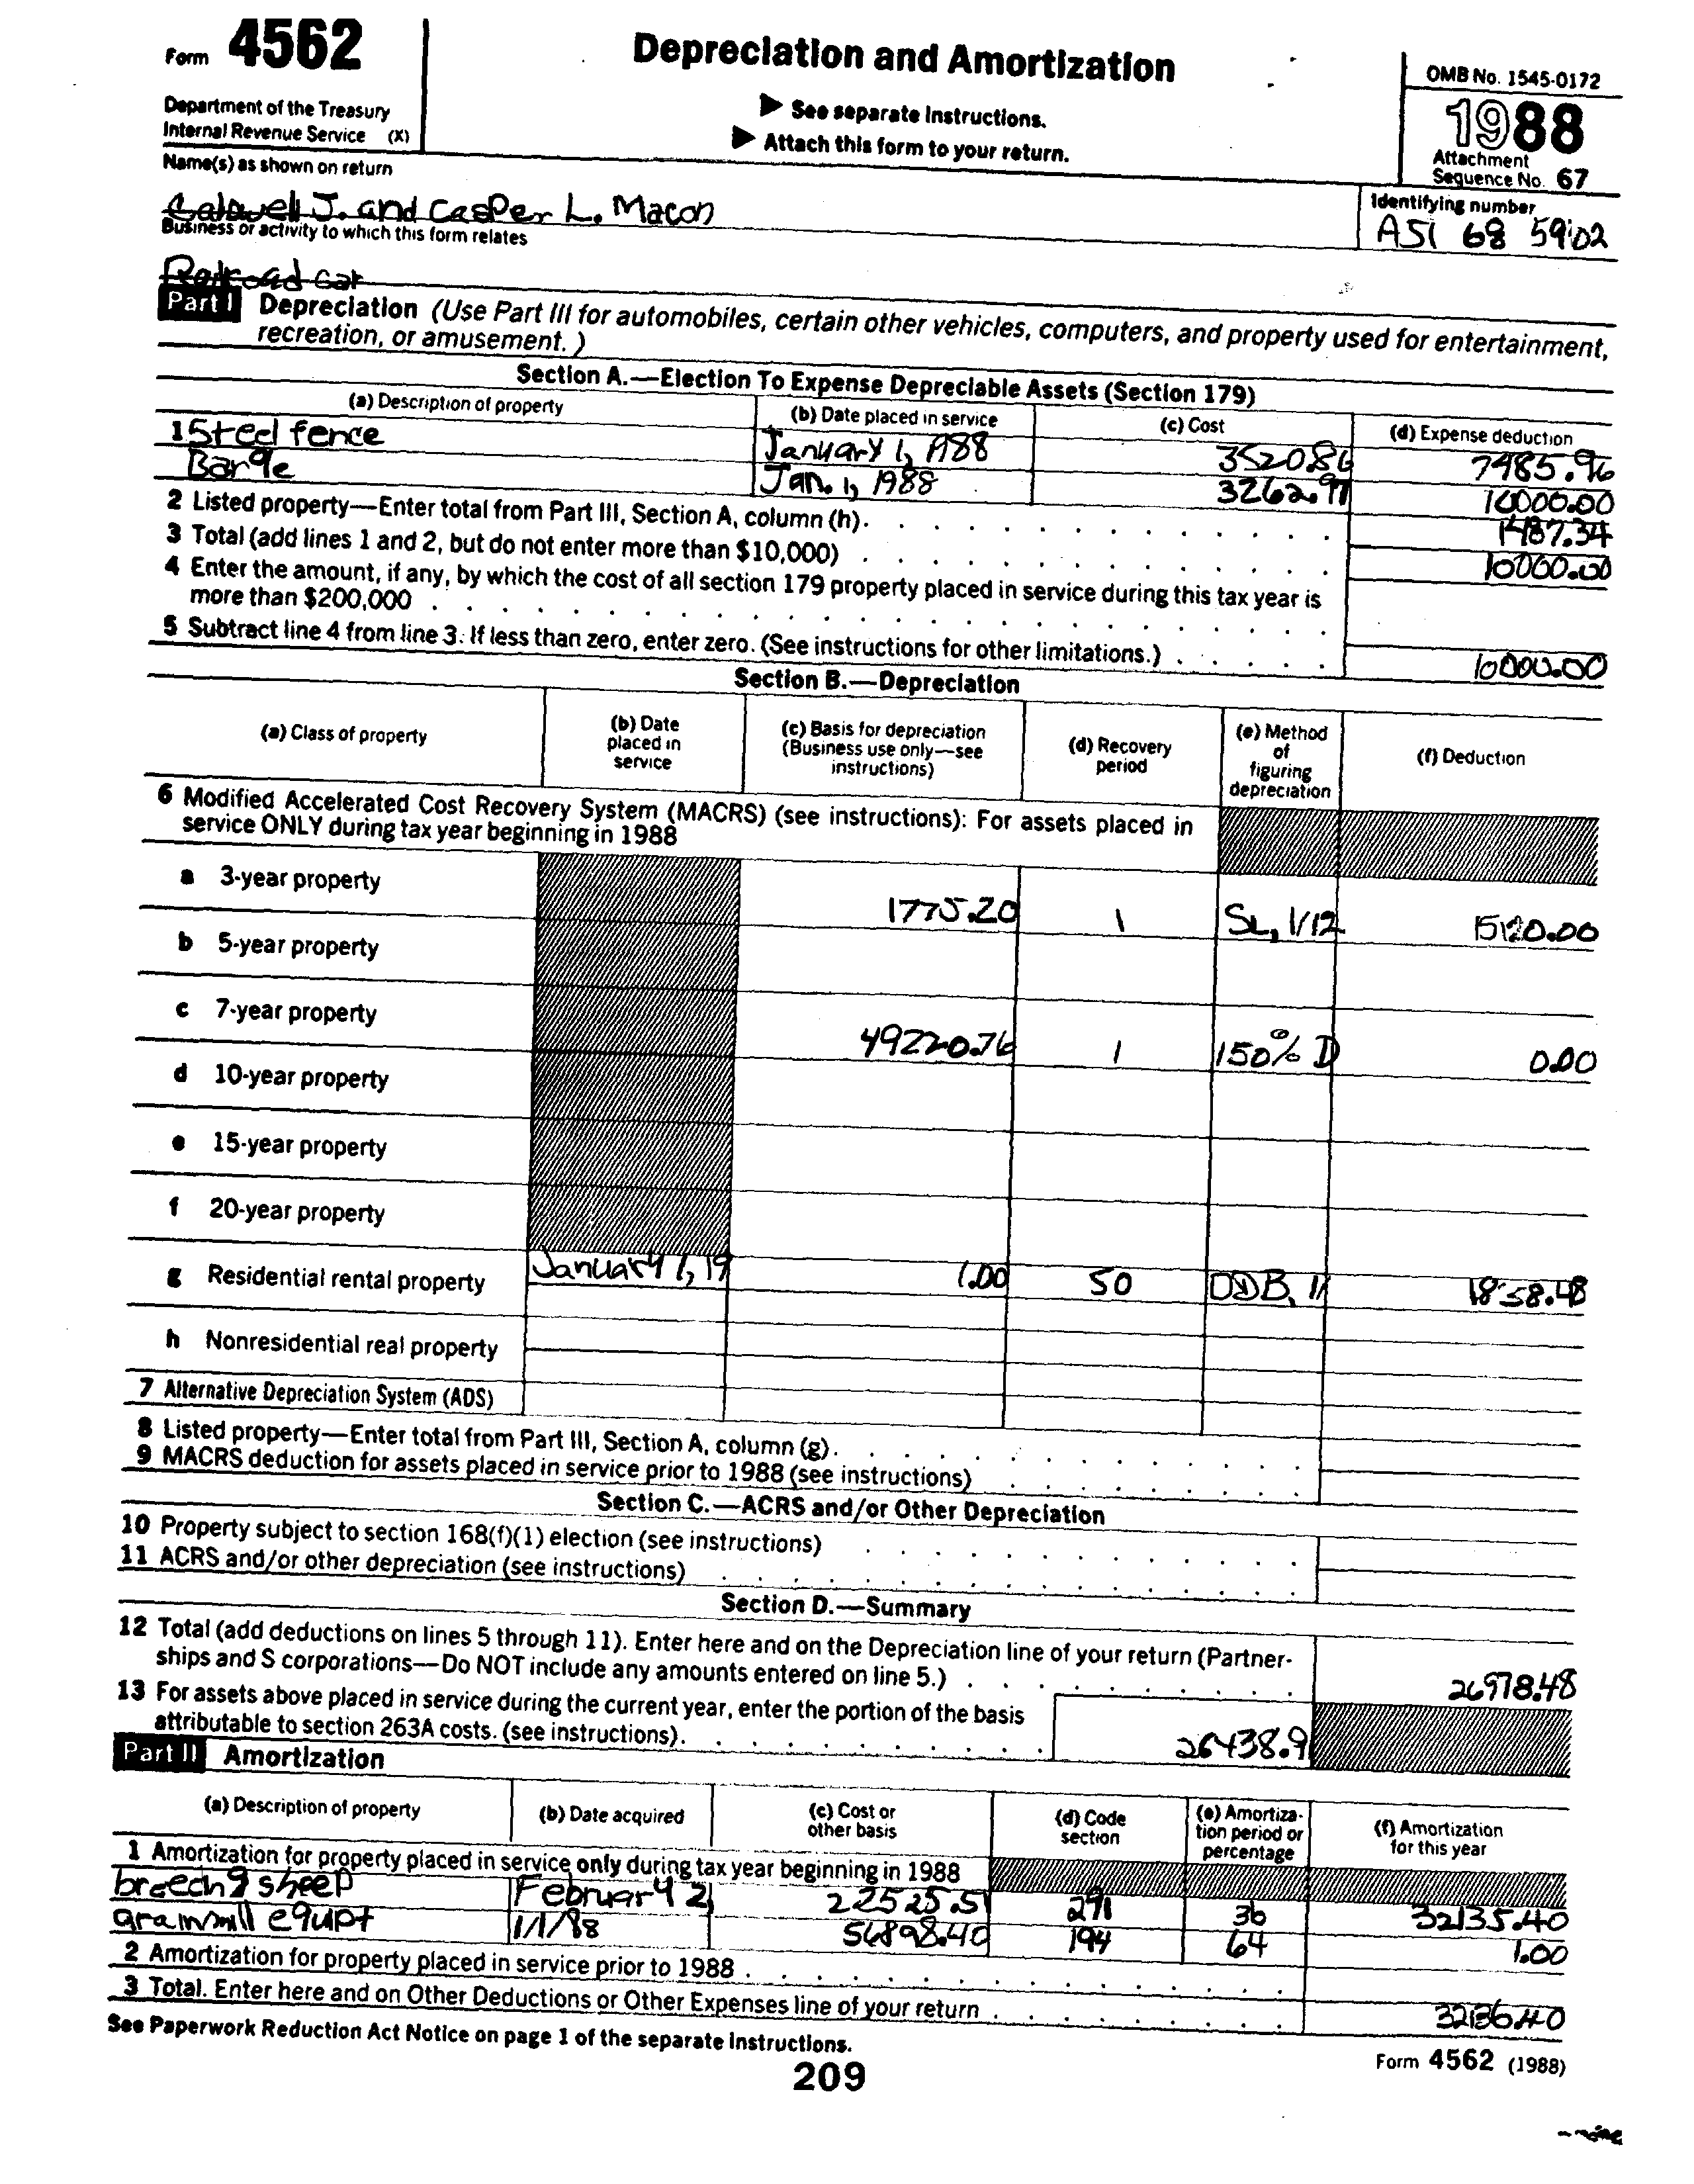 Form 4562
Department of the Treasury
Internal Revenue Service (X)
Depreciation and Amortization
▶ See separate instructions.
▶ Attach this form to your return.
OMB No. 1545-0172
1988
Attachment
Sequence No. 67
Name(s) as shown on return
Identifying number
Calowell J. and Casper L. Macon
AS1 68 5902
Business or activity to which this form relates
Railroad car
Part I Depreciation (Use Part III for automobiles, certain other vehicles, computers, and property used for entertainment,
recreation, or amusement.)
Section A.—Election To Expense Depreciable Assets (Section 179)
(a) Description of property (b) Date placed in service (c) Cost (d) Expense deduction
1 Steel fence January 1, 1988 3520.86 7485.96
Barge Jan. 1, 1988 3262.97 10000.00
2 Listed property—Enter total from Part III, Section A, column (h). 1487.34
3 Total (add lines 1 and 2, but do not enter more than $10,000) 10000.00
4 Enter the amount, if any, by which the cost of all section 179 property placed in service during this tax year is
more than $200,000
5 Subtract line 4 from line 3. If less than zero, enter zero. (See instructions for other limitations.) 10000.00
Section B.—Depreciation
(a) Class of property (b) Date placed in service (c) Basis for depreciation (Business use only—see instructions) (d) Recovery period (e) Method of figuring depreciation (f) Deduction
6 Modified Accelerated Cost Recovery System (MACRS) (see instructions): For assets placed in
service ONLY during tax year beginning in 1988
a 3-year property 1775.20 1 SL, 1/12 15120.00
b 5-year property
c 7-year property 49220.76 1 150% D 0.00
d 10-year property
e 15-year property
f 20-year property
g Residential rental property January 1, 19 1.00 50 DDB, 11 1858.48
h Nonresidential real property
7 Alternative Depreciation System (ADS)
8 Listed property—Enter total from Part III, Section A, column (g).
9 MACRS deduction for assets placed in service prior to 1988 (see instructions)
Section C.—ACRS and/or Other Depreciation
10 Property subject to section 168(f)(1) election (see instructions)
11 ACRS and/or other depreciation (see instructions)
Section D.—Summary
12 Total (add deductions on lines 5 through 11). Enter here and on the Depreciation line of your return (Partner-
ships and S corporations—Do NOT include any amounts entered on line 5.) 26978.48
13 For assets above placed in service during the current year, enter the portion of the basis
attributable to section 263A costs. (see instructions). 26438.9
Part II Amortization
(a) Description of property (b) Date acquired (c) Cost or other basis (d) Code section (e) Amortiza-tion period or percentage (f) Amortization for this year
1 Amortization for property placed in service only during tax year beginning in 1988
breedng sheep February 2, 22525.51 291 36 32135.40
grainmill equpt 1/1/88 56898.40 194 64 1.00
2 Amortization for property placed in service prior to 1988
3 Total. Enter here and on Other Deductions or Other Expenses line of your return 32136.40
See Paperwork Reduction Act Notice on page 1 of the separate instructions.
209
Form 4562 (1988)